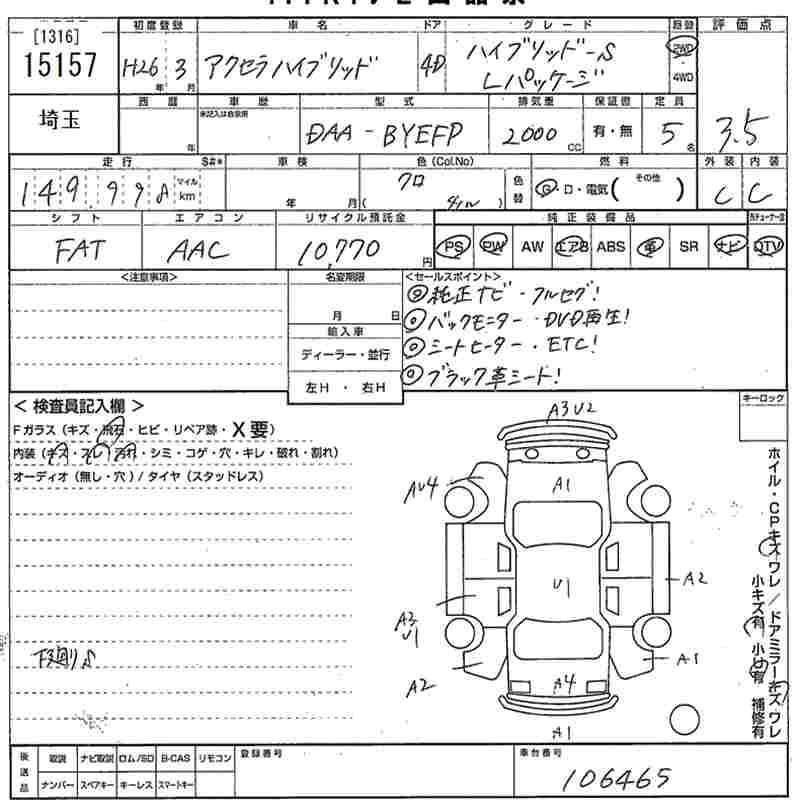 [1316]
15157
初度登録 車名 ドア グレード 駆動 評価点
H26年 3月 アクセラハイブリッド 4D ハイブリッド-S
Lパッケージ
2WD
4WD
3.5
埼玉
西暦 車歴 型式 排気量 保証書 定員
年 未記入は自家用 DAA-BYEFP 2000cc 有・無 5名
走行 S#* 車検 色(Col.No) 燃料 外装 内装
149,998 マイル km 年 月 クロ ( ) 色替 G・D・電気( その他 ) C C
シフト エアコン リサイクル預託金 純正装備品
FAT AAC 10,770円 PS PW AW エアB ABS 革 SR ナビ DTV
<注意事項> 名変期限 <セールスポイント>
月 日
輸入車
ディーラー・並行
左H・右H
◎純正ナビ・フルセグ!
◎バックモニター・DVD再生!
◎シートヒーター・ETC!
◎ブラック革シート!
キーロック
<検査員記入欄>
Fガラス(キズ・飛石・ヒビ・リペア跡・X要)
内装(キズ・スレ・汚れ・シミ・コゲ・穴・キレ・破れ・割れ)
オーディオ(無し・穴)/タイヤ(スタッドレス)
下廻りS
A3U2
A1
AU4
U1
A2
A3
U1
A2
A1
A4
A1
ホイル・CPキズワレ/ドアミラーキズ・ワレ
小キズ有 小U有 補修有
後送品 取説 ナビ取説 ロム/SD B-CAS リモコン 登録番号 車台番号
ナンバー スペアキー キーレス スマートキー 106465